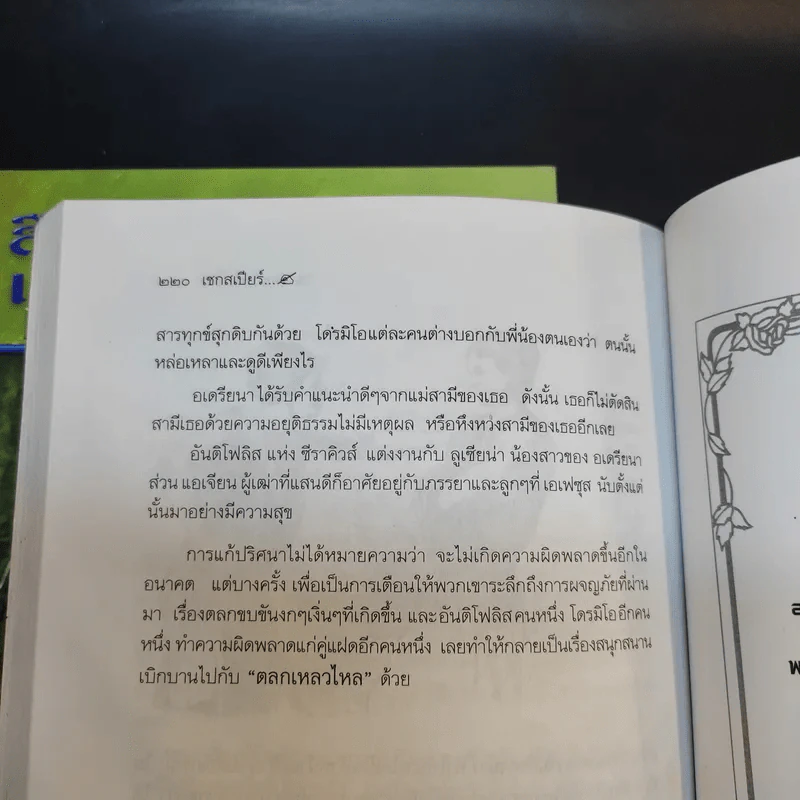 ๒๒๐ เชกสเปียร์...
สารทุกข์สุกดิบกันด้วย โดรมิโอแต่ละคนต่างบอกกับพี่น้องตนเองว่า ตนนั้น
หล่อเหลาและดูดีเพียงไร
อเดรียนาได้รับคำแนะนำดีๆจากแม่สามีของเธอ ดังนั้น เธอก็ไม่ตัดสิน
สามีเธอด้วยความอยุติธรรมไม่มีเหตุผล หรือหึงหวงสามีของเธออีกเลย
อันติโฟลิส แห่ง ซีราคิวส์ แต่งงานกับ ลูเซียน่า น้องสาวของ อเดรียนา
ส่วน แอเจียน ผู้เฒ่าที่แสนดีก็อาศัยอยู่กับภรรยาและลูกๆที่ เอเฟซุส นับตั้งแต่
นั้นมาอย่างมีความสุข
การแก้ปริศนาไม่ได้หมายความว่า จะไม่เกิดความผิดพลาดขึ้นอีกใน
อนาคต แต่บางครั้ง เพื่อเป็นการเตือนให้พวกเขาระลึกถึงการผจญภัยที่ผ่าน
มา เรื่องตลกขบขันงกๆเงิ่นๆที่เกิดขึ้น และอันติโฟลิสคนหนึ่ง โดรมิโออีกคน
หนึ่ง ทำความผิดพลาดแก่คู่แฝดอีกคนหนึ่ง เลยทำให้กลายเป็นเรื่องสนุกสนาน
เบิกบานไปกับ “ตลกเหลวไหล” ด้วย